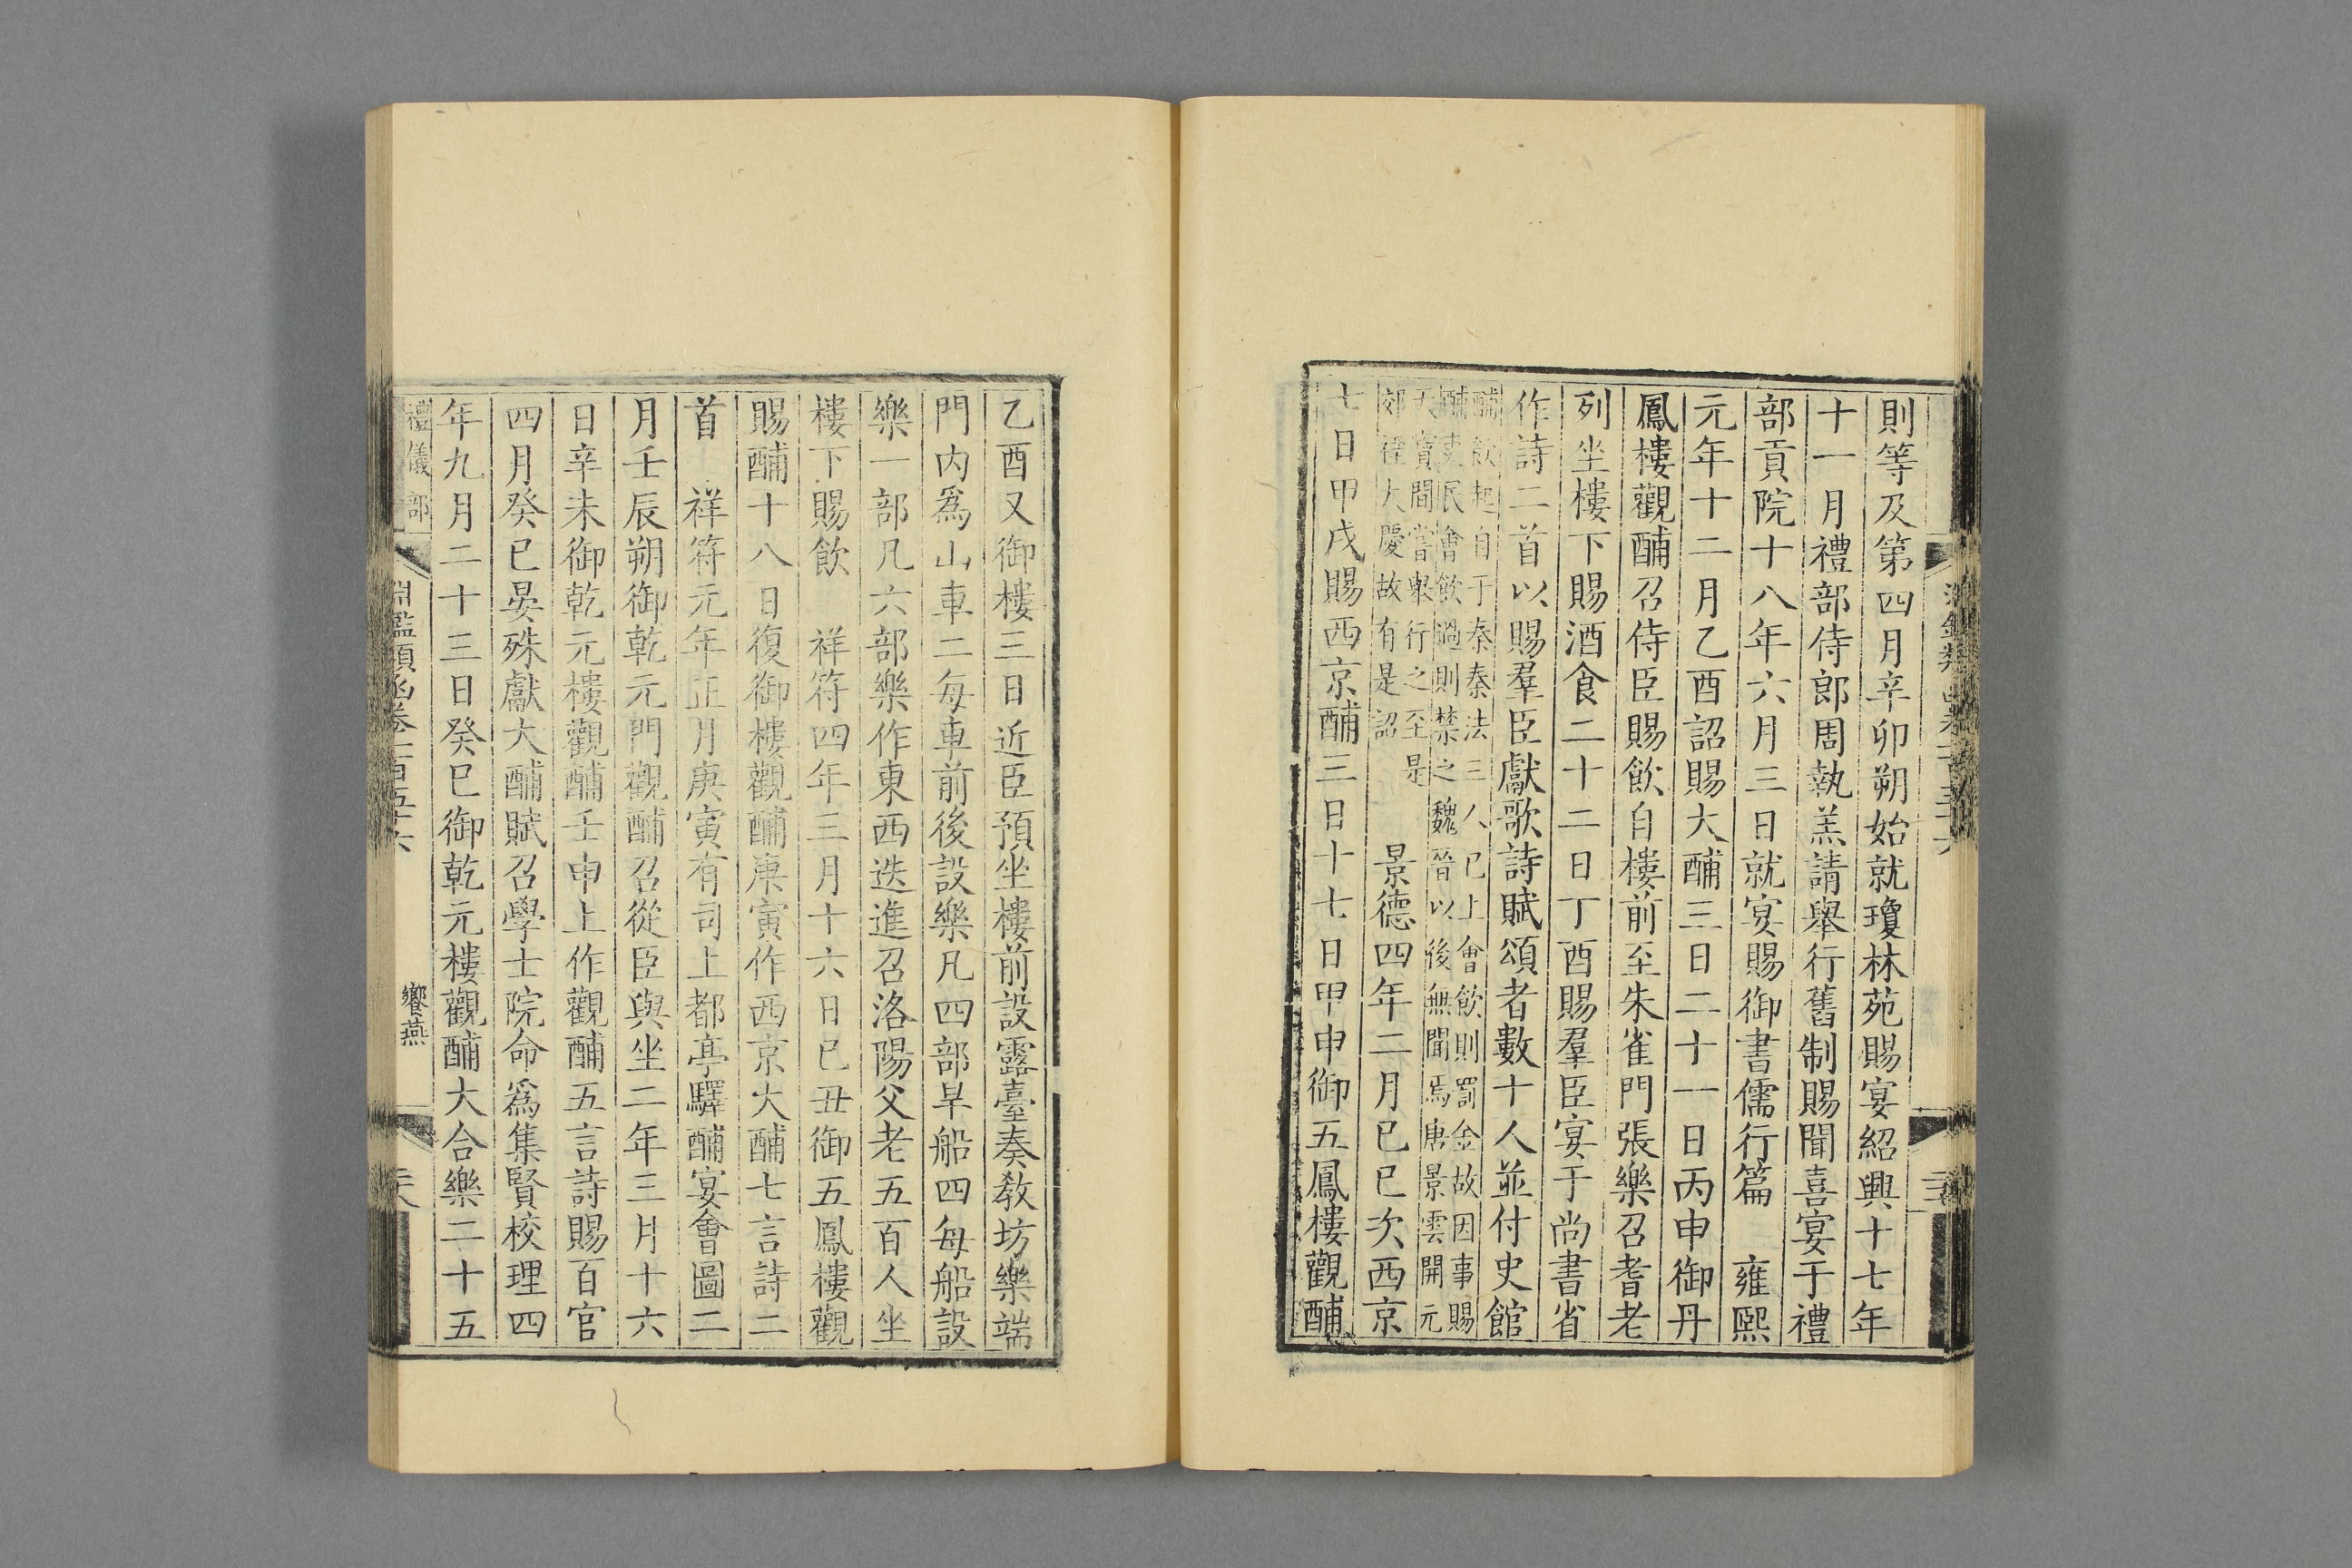 則等及第四月辛卯朔始就瓊林苑賜宴紹興十七年
十一月禮部侍郎周執羔請舉行舊制賜聞喜宴于禮
部貢院十八年六月三日就宴賜御書儒行篇　雍熙
元年十二月乙酉詔賜大酺三日二十一日丙申御丹
鳳樓觀酺召侍臣賜飲自樓前至朱雀門張樂召耆老
列坐樓下賜酒食二十二日丁酉賜羣臣宴于尚書省
作詩二首以賜羣臣獻歌詩賦頌者數十人並付史館
酺飲起自于秦秦法三人已上會飲則罰金故因事賜
酺吏民會飲過則禁之魏晉以後無聞焉唐景雲開元
天寶間嘗舉行之至是
郊禋大慶故有是詔　景德四年二月己巳次西京
七日甲戌賜西京酺三日十七日甲申御五鳳樓觀酺
乙酉又御樓三日近臣預坐樓前設露臺奏教坊樂端
門內爲山車二每車前後設樂凡四部旱船四每船設
樂一部凡六部樂作東西迭進召洛陽父老五百人坐
樓下賜飲　祥符四年三月十六日己丑御五鳳樓觀
賜酺十八日復御樓觀酺庚寅作西京大酺七言詩二
首　祥符元年正月庚寅有司上都亭驛酺宴會圖二
月壬辰朔御乾元門觀酺召從臣與坐二年三月十六
日辛未御乾元樓觀酺壬申上作觀酺五言詩賜百官
四月癸巳晏殊獻大酺賦召學士院命爲集賢校理四
年九月二十三日癸巳御乾元樓觀酺大合樂二十五
禮儀部
淵鑑類函卷一百五十六
饗燕